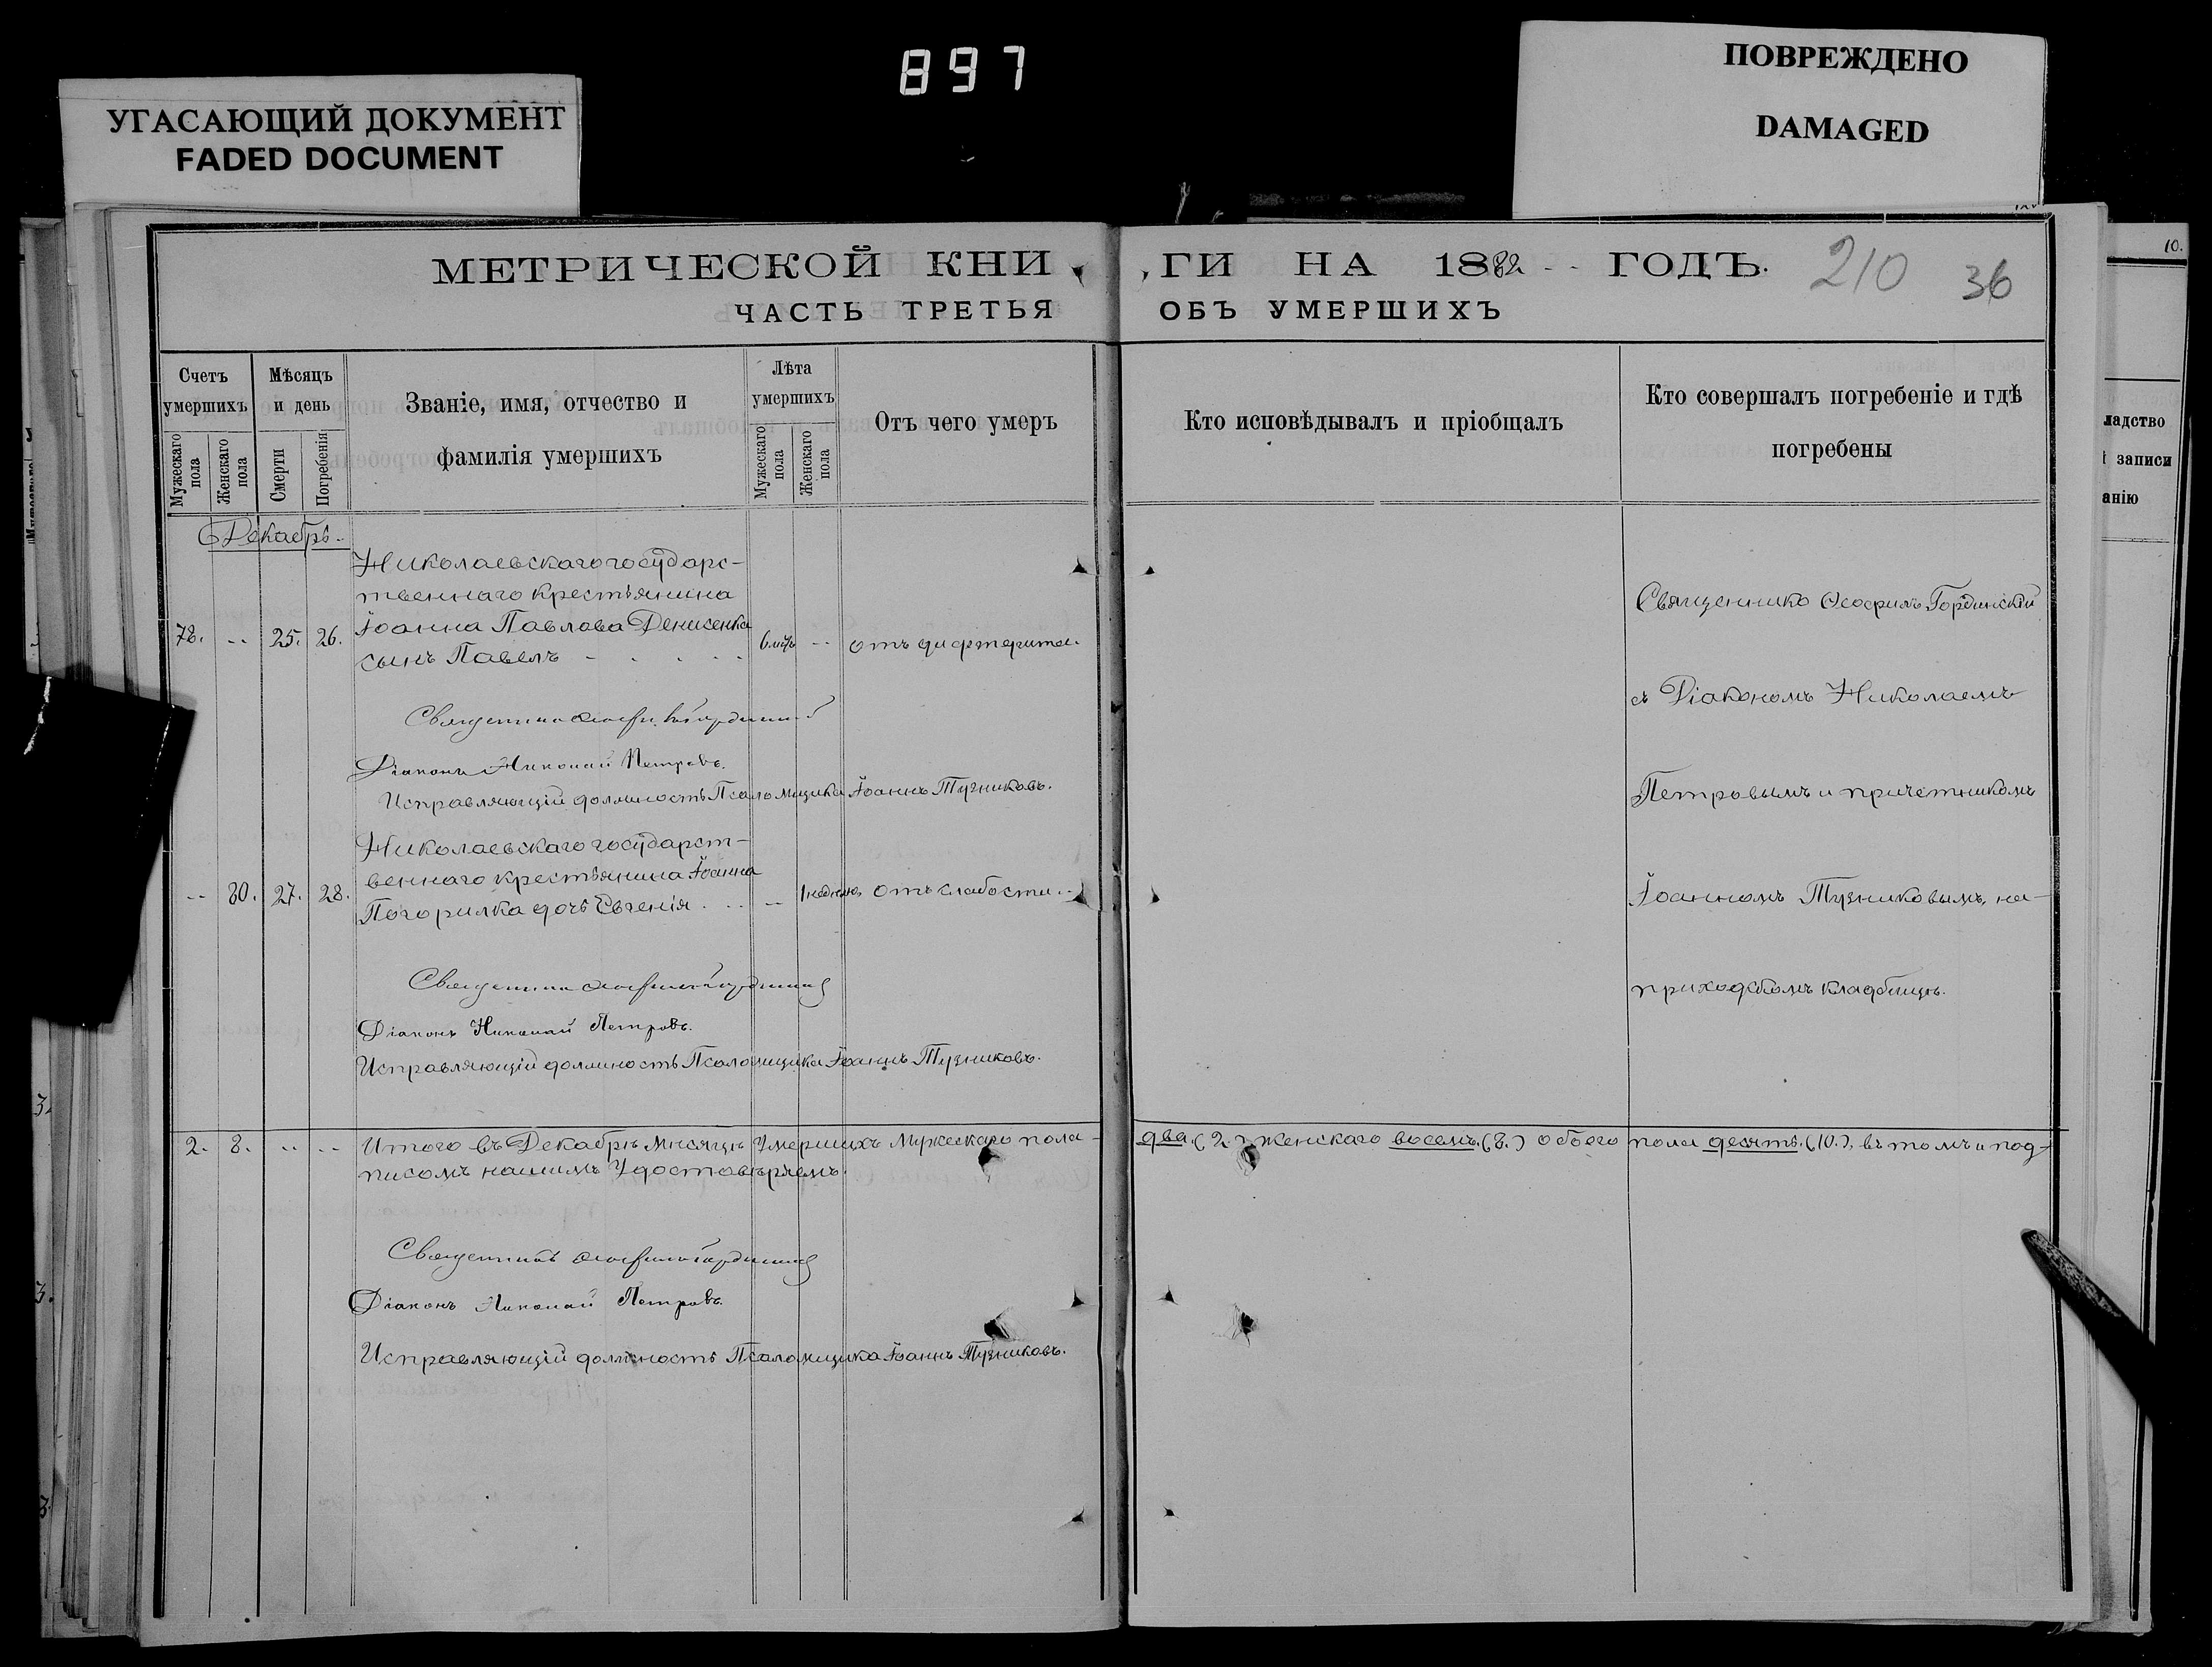 897
УГАСАЮЩИЙ ДОКУМЕНТ
FADED DOCUMENT
ПОВРЕЖДЕНО
DAMAGED
МЕТРИЧЕСКОЙ КНИ
ГИ НА 1882 ГОДЪ.
210 36
ЧАСТЬ ТРЕТЬЯ
ОБЪ УМЕРШИХЪ
Счетъ умершихъ
Мужескаго пола
Женскаго пола
Мѣсяцъ и день
Смерти
Погребенія
Званіе, имя, отчество и
фамилія умершихъ
Лѣта умершихъ
Мужескаго пола
Женскаго пола
Отъ чего умеръ
Кто исповѣдывалъ и пріобщалъ
Кто совершалъ погребеніе и гдѣ
погребены
Декабрь.
Николаевскаго государс-
твеннаго крестьянина
Іоанна Павлова Денисенка
78. -- 25. 26. сынъ Павелъ 6 мѣс. -- отъ дифтерита.
Священникъ
Діаконъ Николай Петровъ.
Исправляющій должность Псаломщика Іоаннъ Тузниковъ.
Николаевскаго государст-
веннаго крестьянина Іоанна
-- 80. 27. 28. Погорилка дочь Евгенія -- 1 недѣля отъ слабости.
Священникъ
Діаконъ Николай Петровъ.
Исправляющій должность Псаломщика Іоаннъ Тузниковъ.
Священникъ Гординскій
съ Діакономъ Николаемъ
Петровымъ и причетникомъ
Іоанномъ Тузниковымъ, на-
приходскомъ кладбищѣ.
2. 8. -- -- Итого въ Декабрѣ мѣсяцѣ умершихъ мужескаго пола- два (2.) женскаго восемь (8.) обоего пола десять (10.), въ томъ и под-
писомъ нашимъ удостовѣряемъ.
Священникъ
Діаконъ Николай Петровъ.
Исправляющій должность Псаломщика Іоаннъ Тузниковъ.
10.
записи
анію